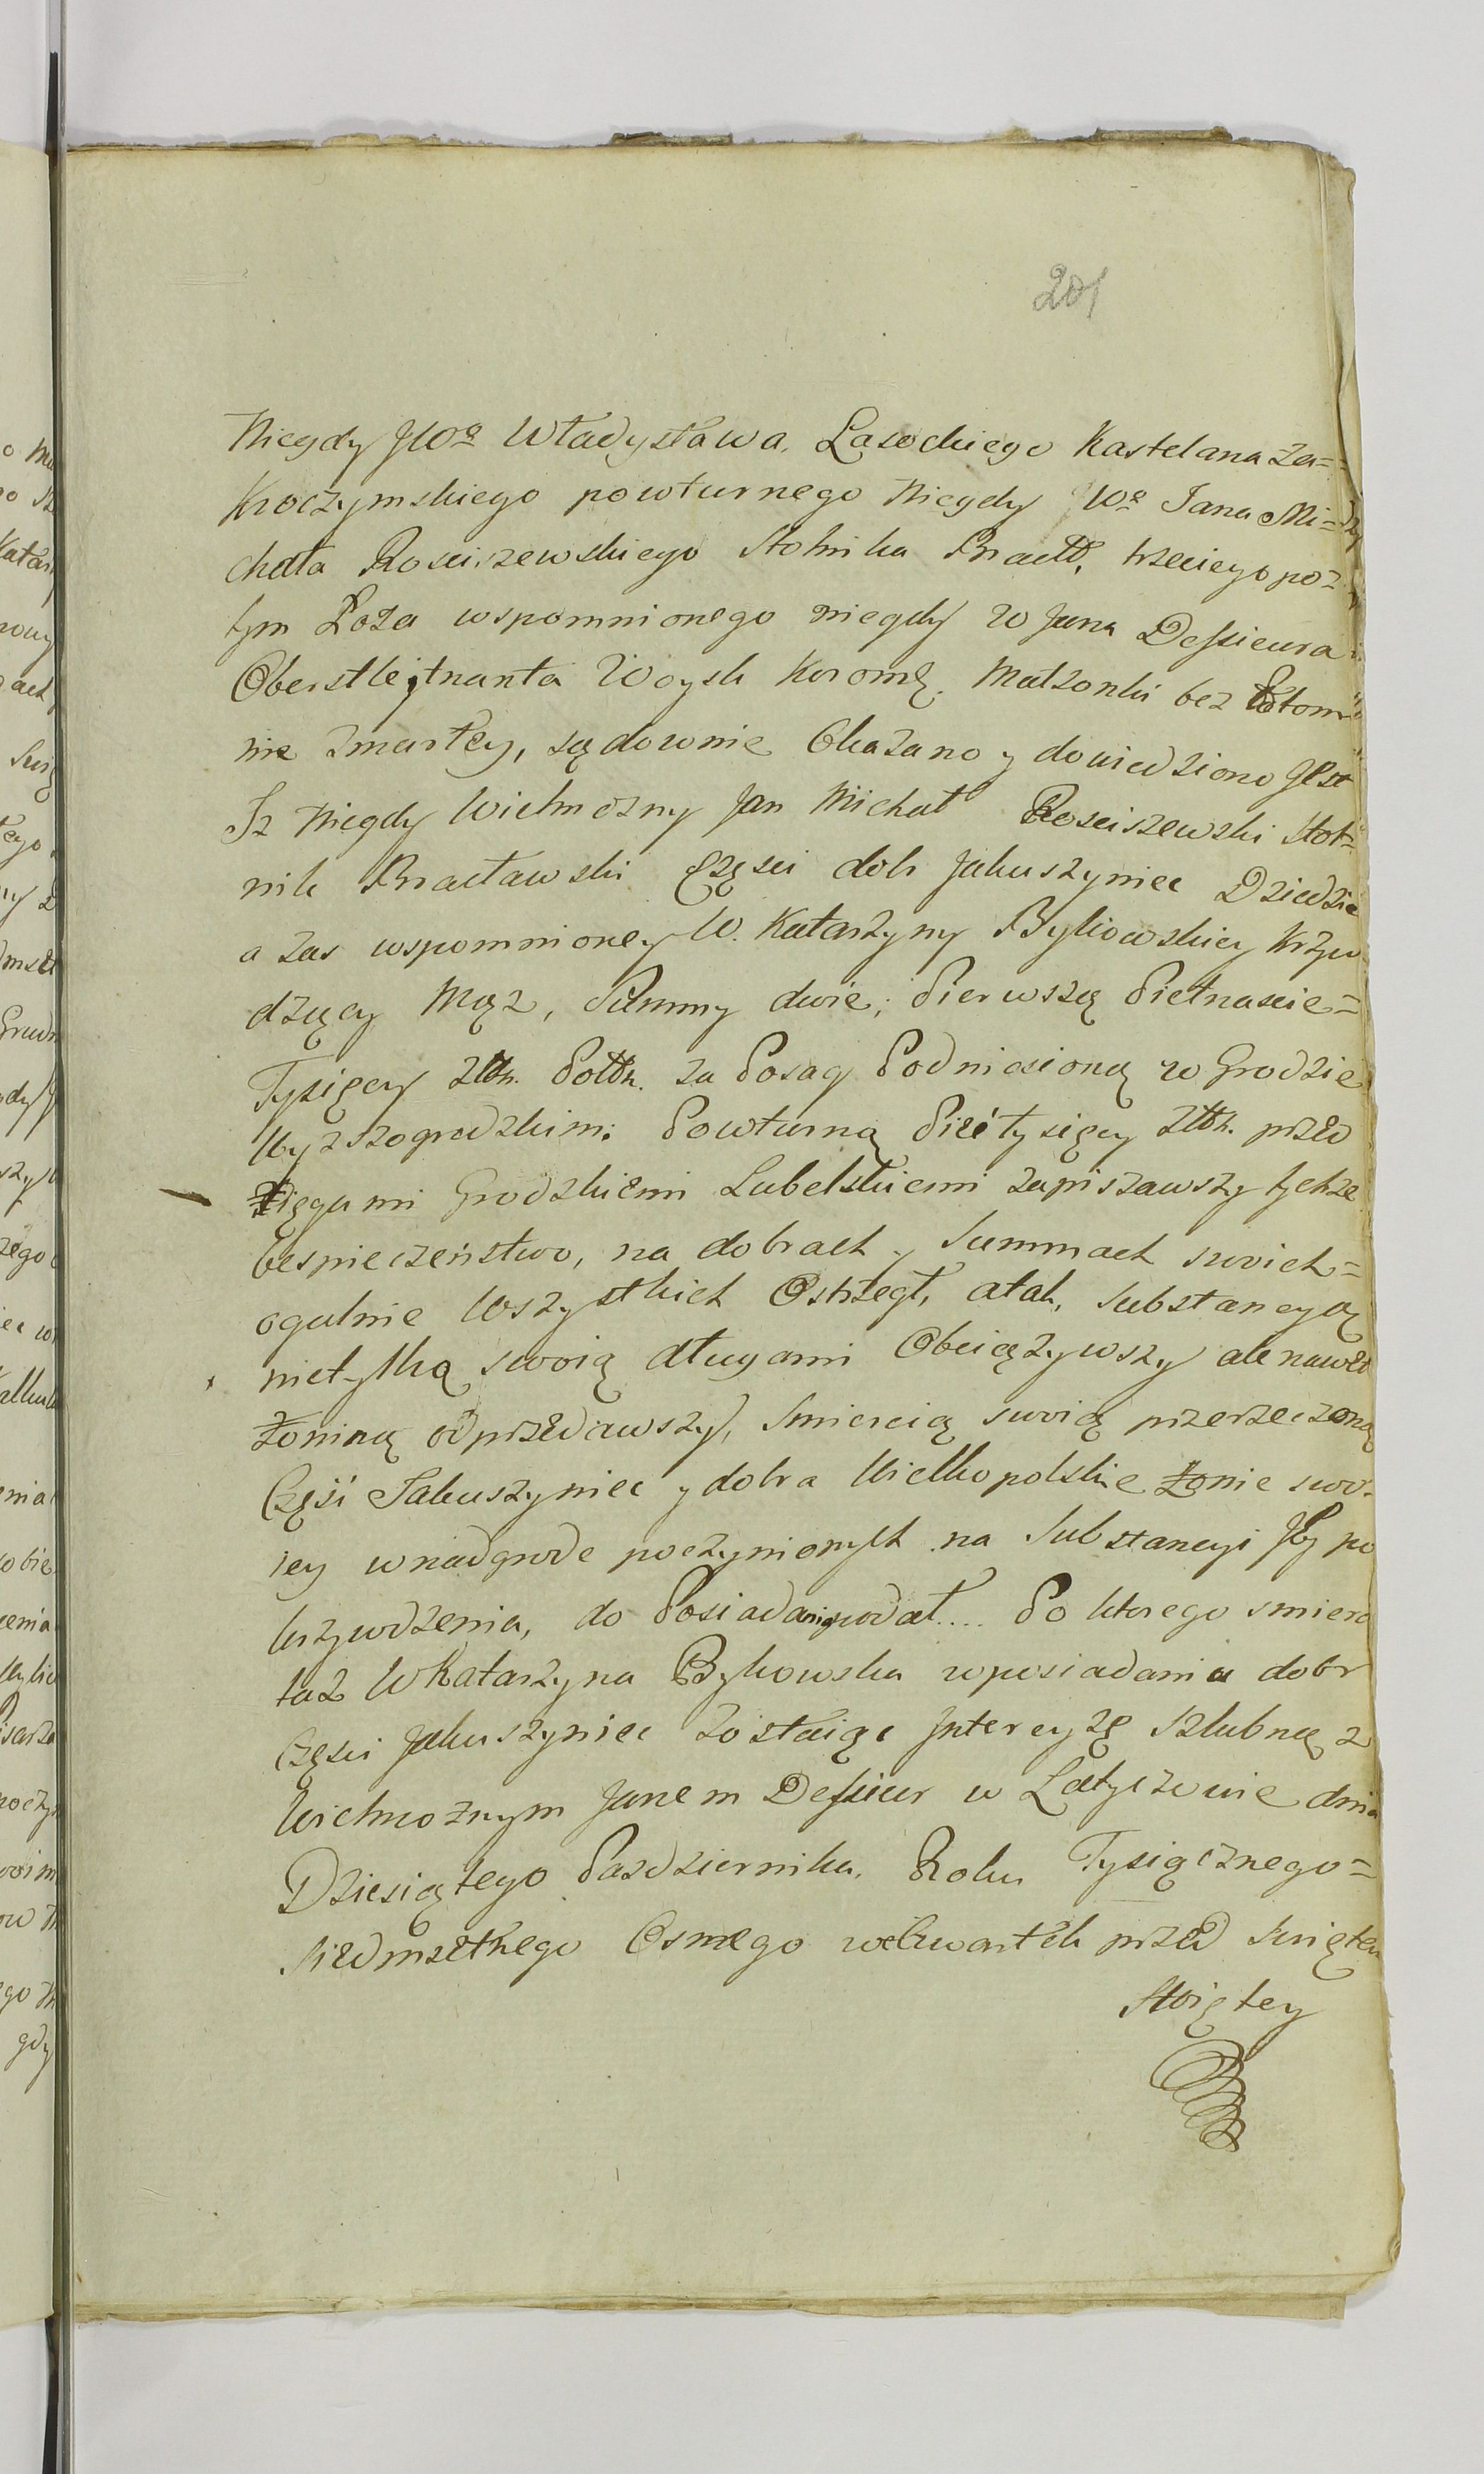 201
Niegdy JWo Władysława Lasockiego Kastelana Za=
kroczymskiego powturnego Niegdy Wo Jana Mi=
chała Rosciszewskiego Stolnika Bracł, trzeciego po=
tym Łoża wspomnionego niegdy W Jana Desieura
Oberstlejtnanta Woysk Koronn Małzonki bez Potom
nie zmarłey, sądownie Okazano y dowiedziono Jest
Iz Niegdy Wielmozny Jan Michał Rosciszewski Stol=
nik Bracławski Częsci dobr Jakuszyniec Dziedzic
a zas wspomnioney W. Katarzyny Bykowskiey Krzyw
dzący Mąz, Summy dwie, Pierwszą Pietnascie=
Tysięcy złłh. Połłh. za Posag Podniesioną w Grodzie
Wyszogrodzkim; Powturną Pięć tysięcy złłh. przed
Xięgami Grodzkiemi Lubelskiemi zapisawszy tychze
bespieczeństwo, na dobrach y Summach swoich=
ogulnie Wszystkich Ostrzegł, a tak, Substancyą
nietylko swoią długami Obciążywszy ale nawet
Żoniną odprzedawszy, Smiercią swoią przerzeczoną
Część Jakuszyniec y dobra Wielkopolskie Żonie swo=
iey w nadgrode poczynionych na Substancyi Jey po
krzywdzenia, do Posiadania podał.... Po ktorego smierci
taż W Katarzyna Bykowska w posiadaniu dobr
Częsci Jakuszyniec zostaiąc Intercyzę szlubną z
Wielmożnym Janem Desieur w Latyczowie dnia
Dziesiątego Pazdziernika Roku Tysiącznego=
siedmsetnego Osmego we Czwartek przed Swiętem
Swiętey